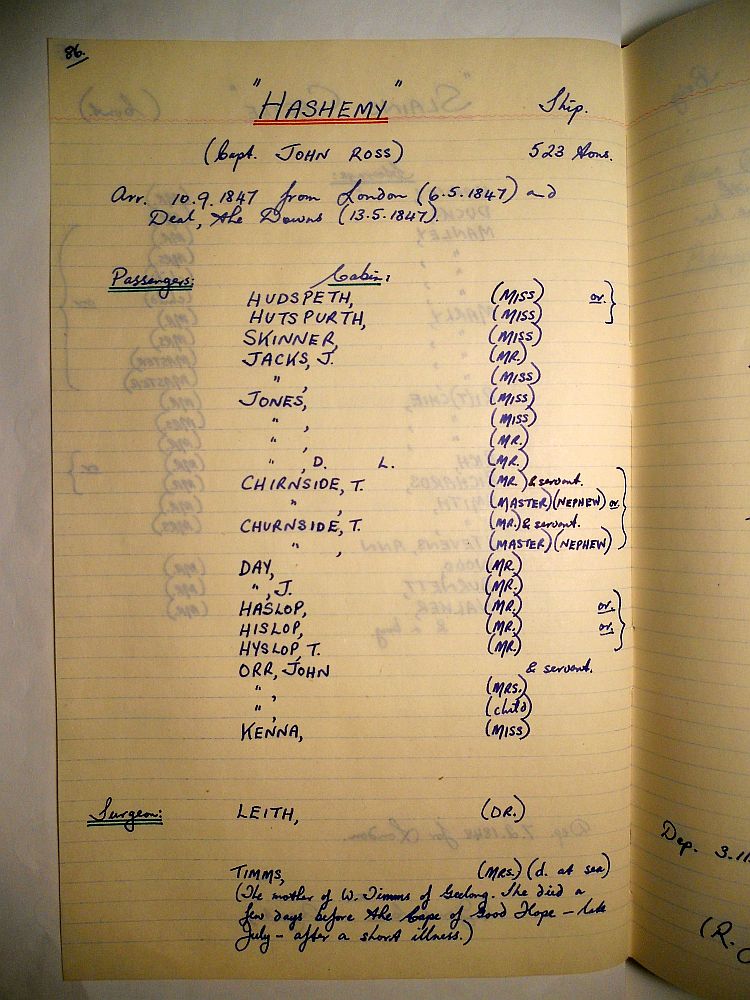 86.
"HASHEMY" Ship.
(Capt. JOHN ROSS) 523 tons.
Arr. 10.9.1847 from London (6.5.1847) and
Deal, the Downs (13.5.1847).
Passengers: Cabin:
HUDSPETH, (MISS) or }
HUTSPURTH, (MISS)
SKINNER, (MISS)
JACKS, J. (MR.)
" , (MISS)
JONES, (MISS)
" , (MISS)
" , (MR.)
" , D. L. (MR.)
CHIRNSIDE, T. (MR.) & servant. }
" , (MASTER) (NEPHEW) or
CHURNSIDE, T. (MR.) & servant.
" , (MASTER) (NEPHEW)
DAY, (MR.)
" , J. (MR.)
HASLOP, (MR.) or. }
HISLOP, (MR.) or.
HYSLOP, T. (MR.)
ORR, JOHN & servant.
" , (MRS.)
" , (child)
KENNA, (MISS)
Surgeon: LEITH, (DR.)
TIMMS, (MRS.) (d. at sea)
(The mother of W. Timms of Geelong. She died a
few days before the Cape of Good Hope – late
July – after a short illness.)
Dep. 3.11
(R.